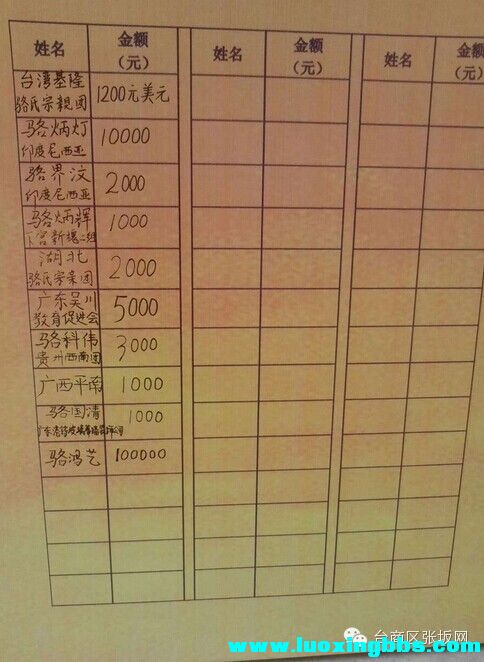 姓名 金额（元） 姓名 金额（元） 姓名 金额（元）
台湾基隆
骆氏宗親团 1200元美元
骆炳灯
印度尼西亚 10000
骆界汶
印度尼西亚 2000
骆炳辉
下宫新 1000
湖北
骆氏宗亲团 2000
广东吴川
教育促进会 5000
骆科伟
贵州西南团 3000
广西平南 1000
骆国清 1000
骆鸿艺 100000
台商区张坂网
www.luoxingbbs.com